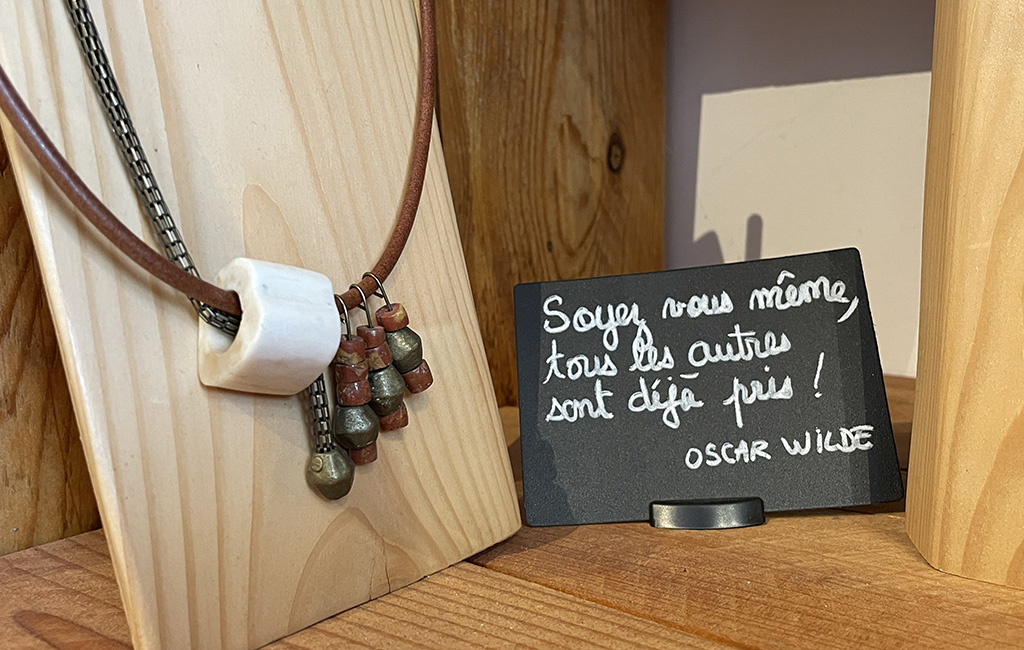 Soyez vous même,
tous les autres
sont déjà pris !
OSCAR WILDE